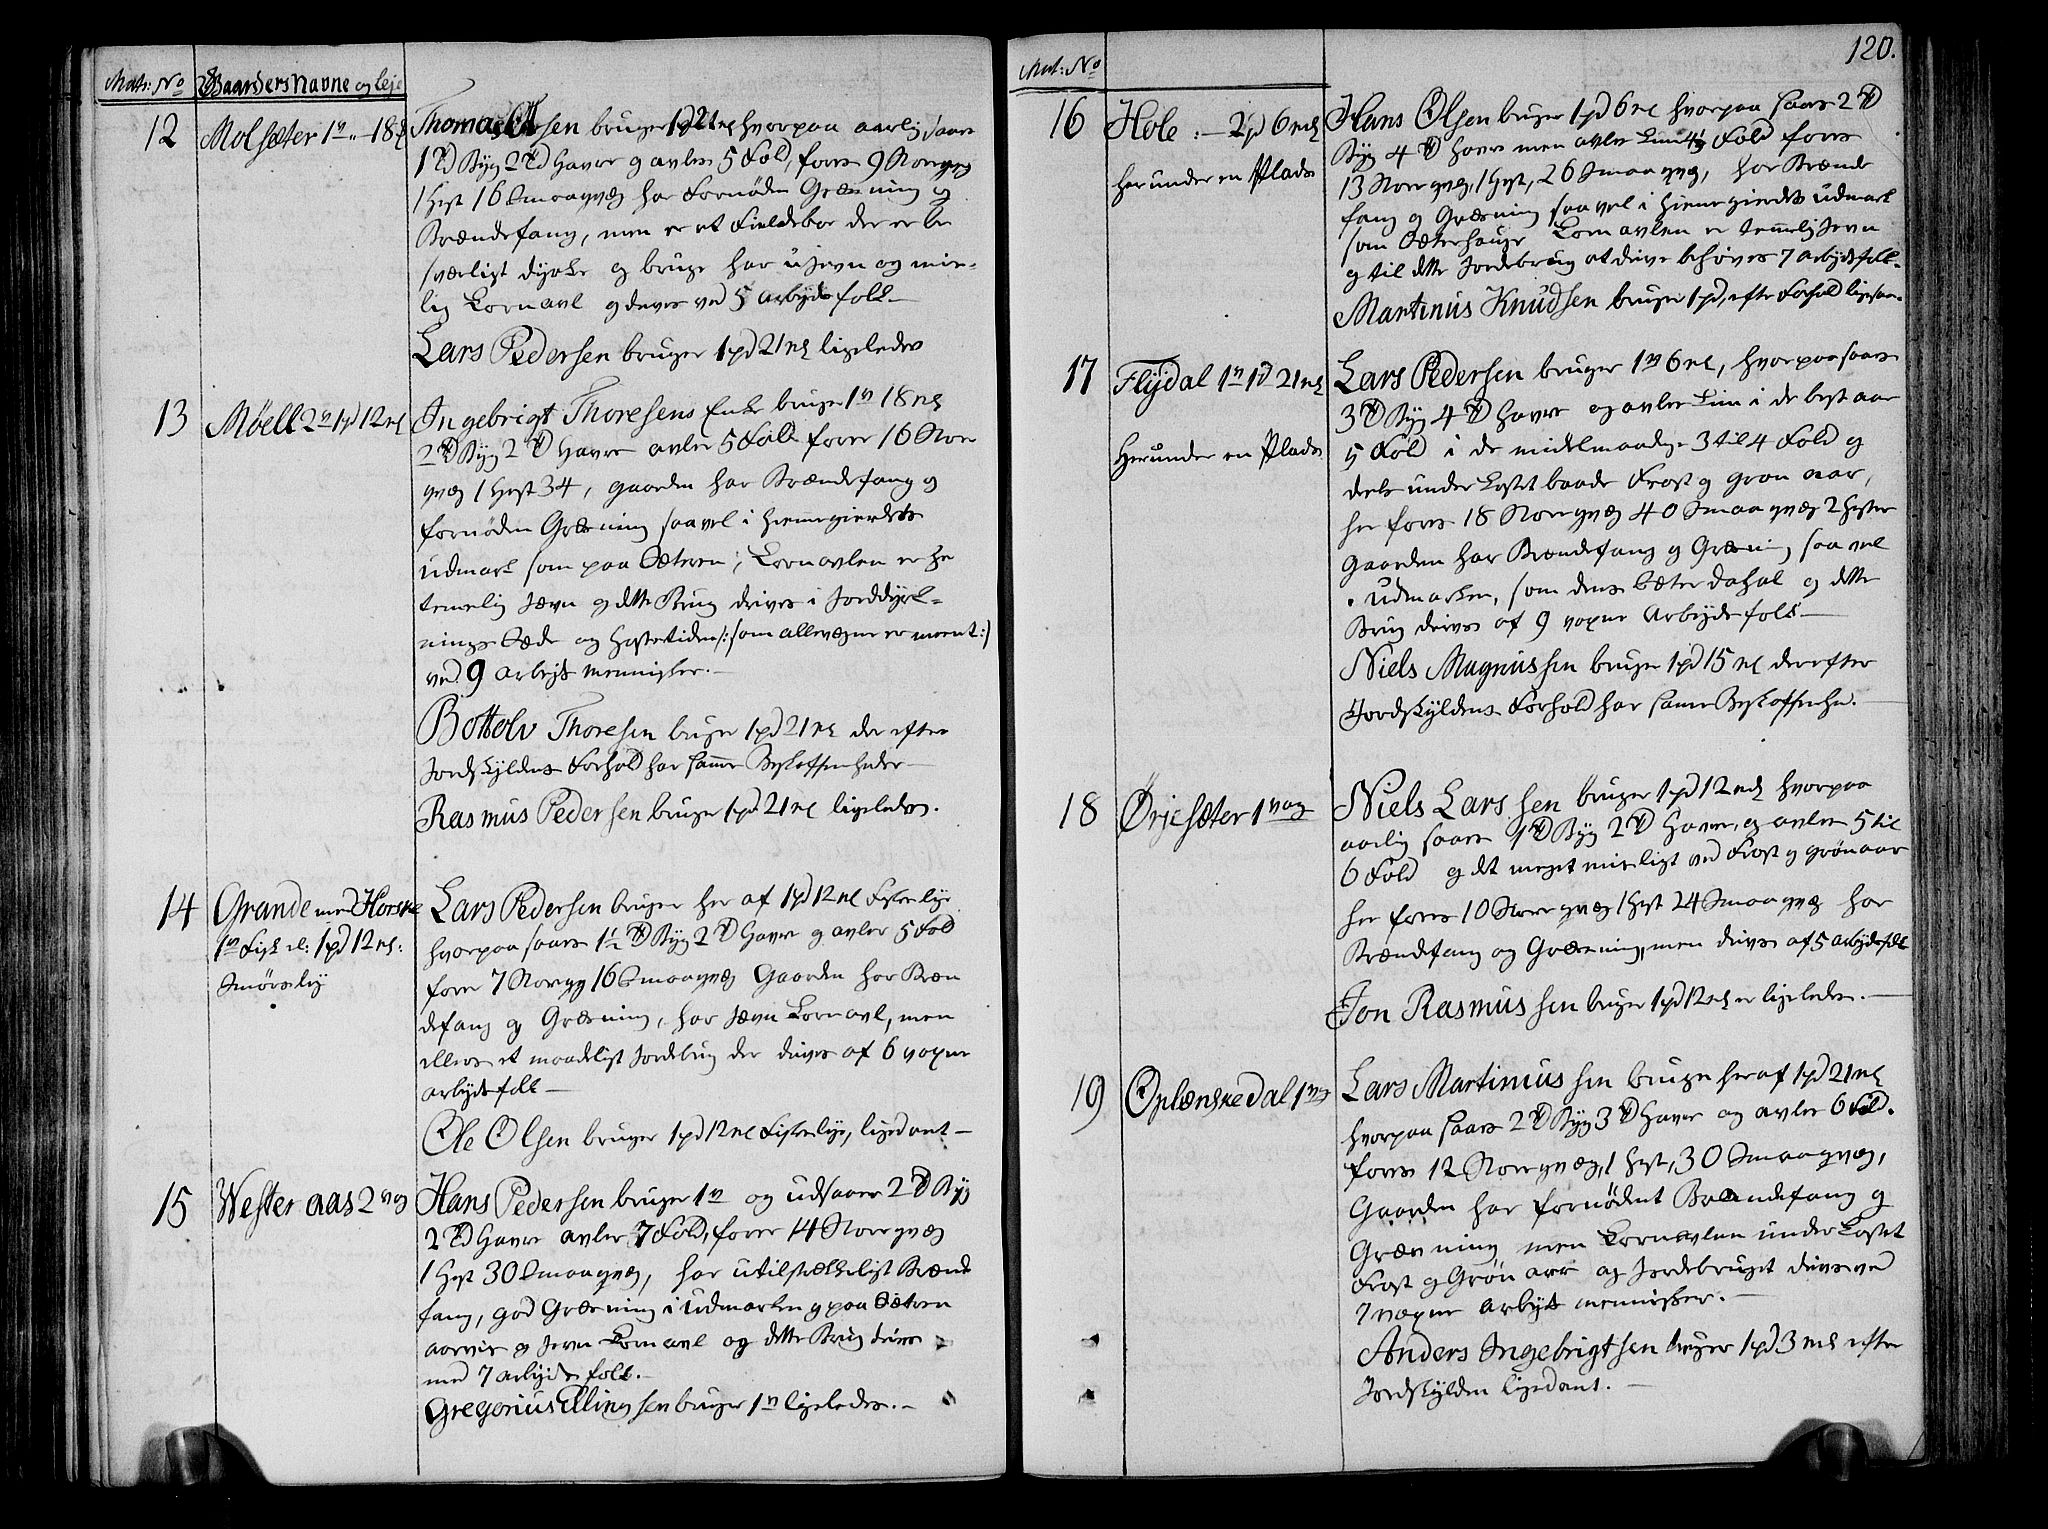 Matr: No
Gaardens Navne og leje
12
Molsæter 1 18
Thomas Olsen bruger 1 pd 21 mk hvorpaa aarlig saaes
1 Td Byg 2 Td Havre og avles 5 Fold, föres 9 Storqvæg
1 Hest 16 Smaaqvæg har Fornöden Græsning og
Brændefang, men er et Fieldebor der er be
sværligt dyrke og bruge har ujevn og mis-
lig Kornavl og drives ved 5 arbejdsfolk.
Lars Pedersen bruger 1 pd 21 mk ligeledes
13
Möell 2 1 pd 12 mk
Ingebrigt Thoresens Enke bruger 1 18 mk
2 Td Byg 2 Td Havre avles 5 Fold forer 16 Stor
qvæg 1 Hest 34, gaarden har Brændefang og
fornöden Græsning saavel i hiemegierdets
udmark som paa Sæteren; Kornavlen er her
temelig Jævn og dette Brug drives i Jorddyrk-
nings Sæde og Höstetiden /: som allevægne er meent :/
ved 9 arbejds mennisker.
Bottolv Thoresen bruger 1 pd 21 mk der efter
Jordskyldens Forhold har samme Beskaffenheder
Rasmus Pedersen bruger 1 pd 21 mk ligeledes.
14
Grande med Horske
1 Fisk el: 1 pd 12 mk:
Smörsleje
Lars Pedersen bruger her af 1 pd 12 mk Fiskeleje
hvorpaa saaes 1½ Td Byg 2 Td Havre og avler 5 Fold
forer 7 Storqvæg 16 Smaaqvæg Gaarden har Bræn
defang og Græsning, har Jævn Kornavl, men
ellers et maadeligt Jordebrug der drives af 6 voxne
arbejdsfolk
Ole Olsen bruger 1 pd 12 mk Fiskeleje, ligedant
15
Wester aas 2 vog
Hans Pedersen bruger 1 og udsaaer 2 Td Byg
2 Td Havre avler 7 Fold, forer 14 Storqvæg
1 Hest 30 Smaaqvæg, har utilstrækkeligt Brænde
fang, god Græsning i udmarken og paa Sætren
og Jevn Kornavl og dette Brug drives
med 7 arbejdsfolk.
Gregorius Ellingsen bruger 1 ligeledes.
120.
Mat: No
16
Hole : 2 pd 6 mk
herunder en Plads
Hans Olsen bruger 1 pd 6 mk hvorpaa saaes 2 Td
Byg 4 Td Havre men avler kun 4½ Fold fores
13 Storqvæg, 1 Hest, 26 Smaaqvæg, har Brænde
fang og Græsning saavel i hiemegierdets udmark
som Sæterhauge Kornavlen er temelig Jevn
og til dette Jordebrug at drive behöves 7 arbejdsfolk.
Martinus Knudsen bruger 1 pd, efter Forhold ligesaa.
17
Flydal 1 1 pd 21 mk
Herunder en Plads
Lars Pedersen bruger 1 6 mk, hvorpaa saaes
3 Td Byg 4 Td Havre og avler kun i de beste aar
5 Fold i de middelmaadige 3 til 4 Fold og
dels underkastet baade Frost og grön aar,
her fores 18 Storqvæg 40 Smaaqvæg 2 Hester
gaarden har Brændefang og Græsning saavel
i Udmarken, som dens Sæter Dahal og dette
Brug drives af 9 voxne Arbejdsfolk
Niels Magnussen bruger 1 pd 15 mk derefter
Jordskyldens Forhold har samme Beskaffenhed.
18
Örjesæter 1 vog
Niels Larssen bruger 1 pd 12 mk hvorpaa
aarlig saaes 1 Td Byg 2 Td Havre, og avler 5 til
6 Fold og det meget misligt ved Frost og grönaar
her fores 10 Storqvæg 1 Hest 24 Smaaqvæg har
Brændefang og Græsning, men drives af 5 arbejdsfolk
Jon Rasmussen bruger 1 pd 12 mk er ligeledes.
19
Oplænskedal 1 vog
Lars Martinussen bruger heraf 1 pd 21 mk
hvorpaa saaes 2 Td Byg 3 Td Havre og avles 6 Fold.
fores 12 Storqvæg, 1 Hest, 30 Smaaqvæg,
Gaarden har fornödent Brændefang og
Græsning men Kornavlen underkastet
Frost og Grön aar og Jordebruget drives ved
7 voxne arbejds mennisker.
Anders Ingebrigtsen bruger 1 pd 3 mk efter
Jordskylden ligedant.